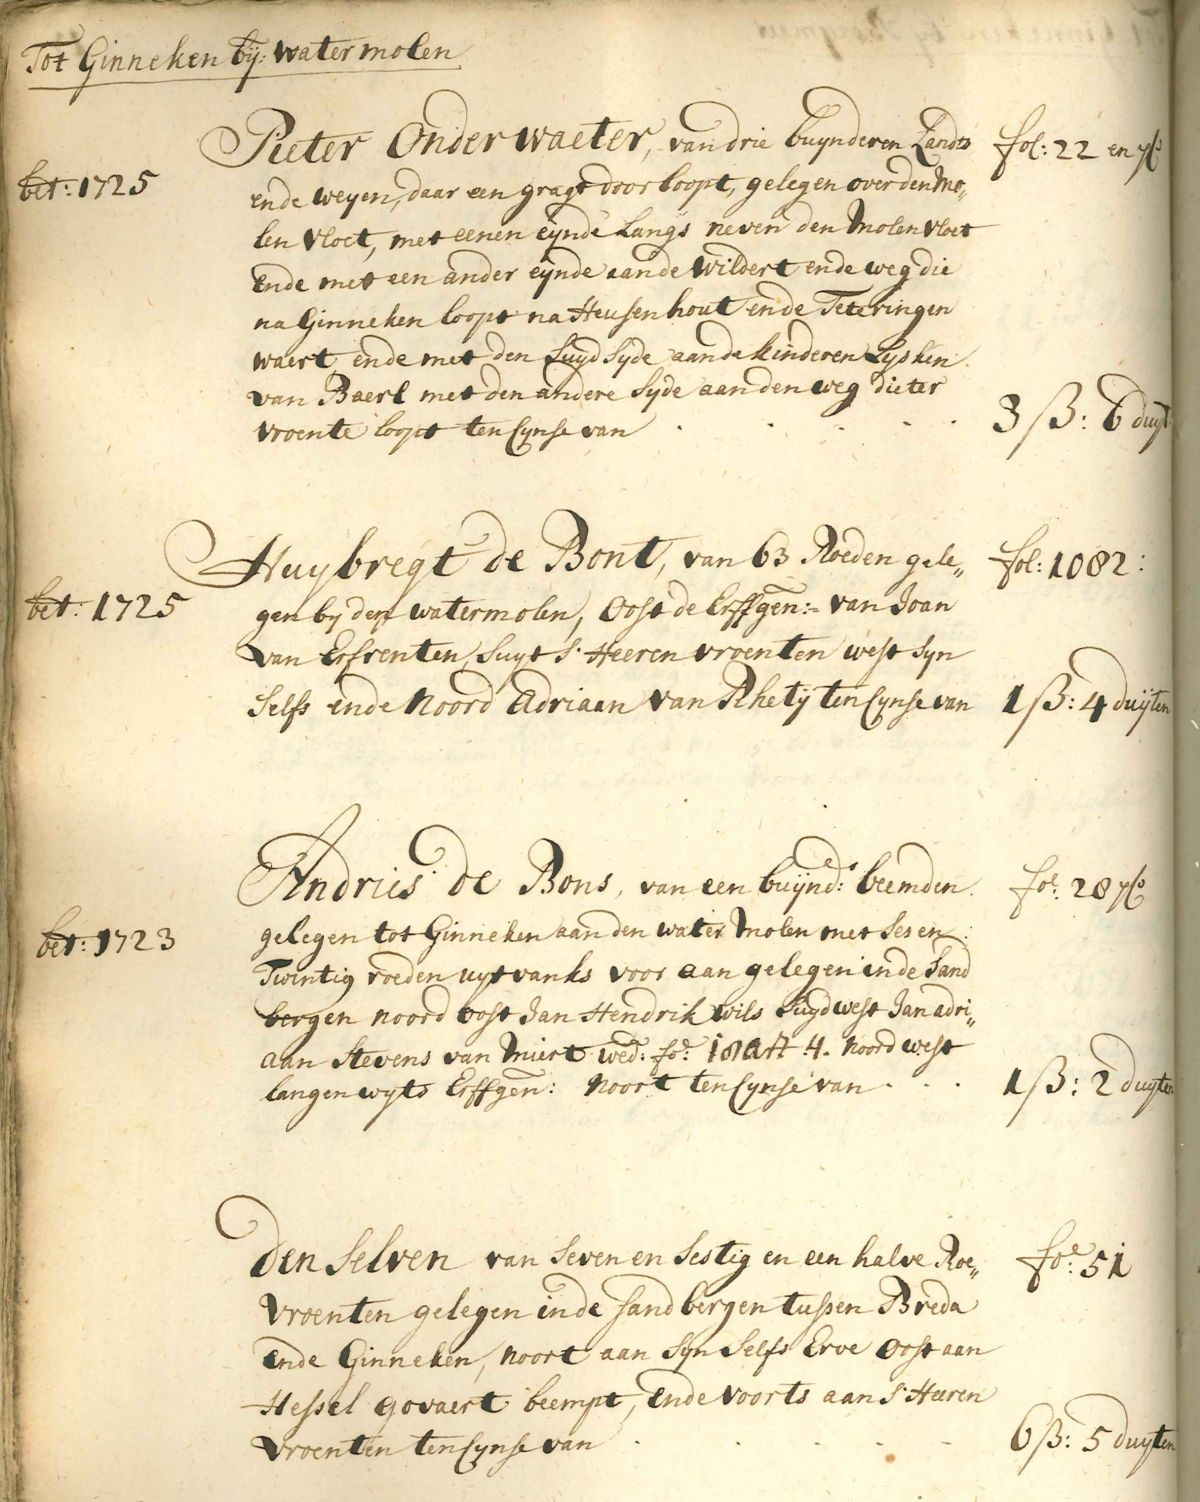 Tot Ginneken bij: watermolen
Pieter Onderwaeter, van drie buynderen Landts fol: 22 en
bet: 1725
ende weyen, daar een gragt door loopt, gelegen over den Mo„
len vloet, met eenen eynde Langs neven den Molen vloet
Ende met een ander eynde aande Wildert ende weg die
na Ginneken loopt na Heusenhout ende Teteringen
waert, ende met den Suyd Syde aande kinderen Lysken
van Baerl met den andere Syde aan den weg die ter
vroente loopt ten Cynse van 3 ß: 6 duyt
Huybregt de Bont, van 63 Roeden gele„ fol: 1082:
bet: 1725
gen by den watermolen, Oost de Erffgen: van Joan
van Ersrenten, Suyt S' Heeren vroenten west Syn
Selfs ende Noord Adriaan van Rhetij ten Cynse van 1 ß: 4 duijten
Andries de Bons, van een buijnd: beemden fol: 28
bet: 1723
gelegen tot Ginneken aan den water Molen met Ses en
Twintig roeden uyt vanks voor aan gelegen inde Sand
bergen noord oost Jan Hendrik wils Suyd west Jan adri„
aan Stevens van Miert wed: fo: Art 4. Noord west
langen wyts Erffgen: Noort ten Cynse van 1 ß: 2 duyten
Den Selven van Seven en Sestig en een halve Roe„ fo: 51
vroenten gelegen inde Sandbergen tussen Breda
Ende Ginneken, Noort aan Syn Selfs Erve Oost aan
Hessel govaert beempt, Ende voorts aan S' Heeren
vroenten ten Cynse van 6 ß: 5 duyten